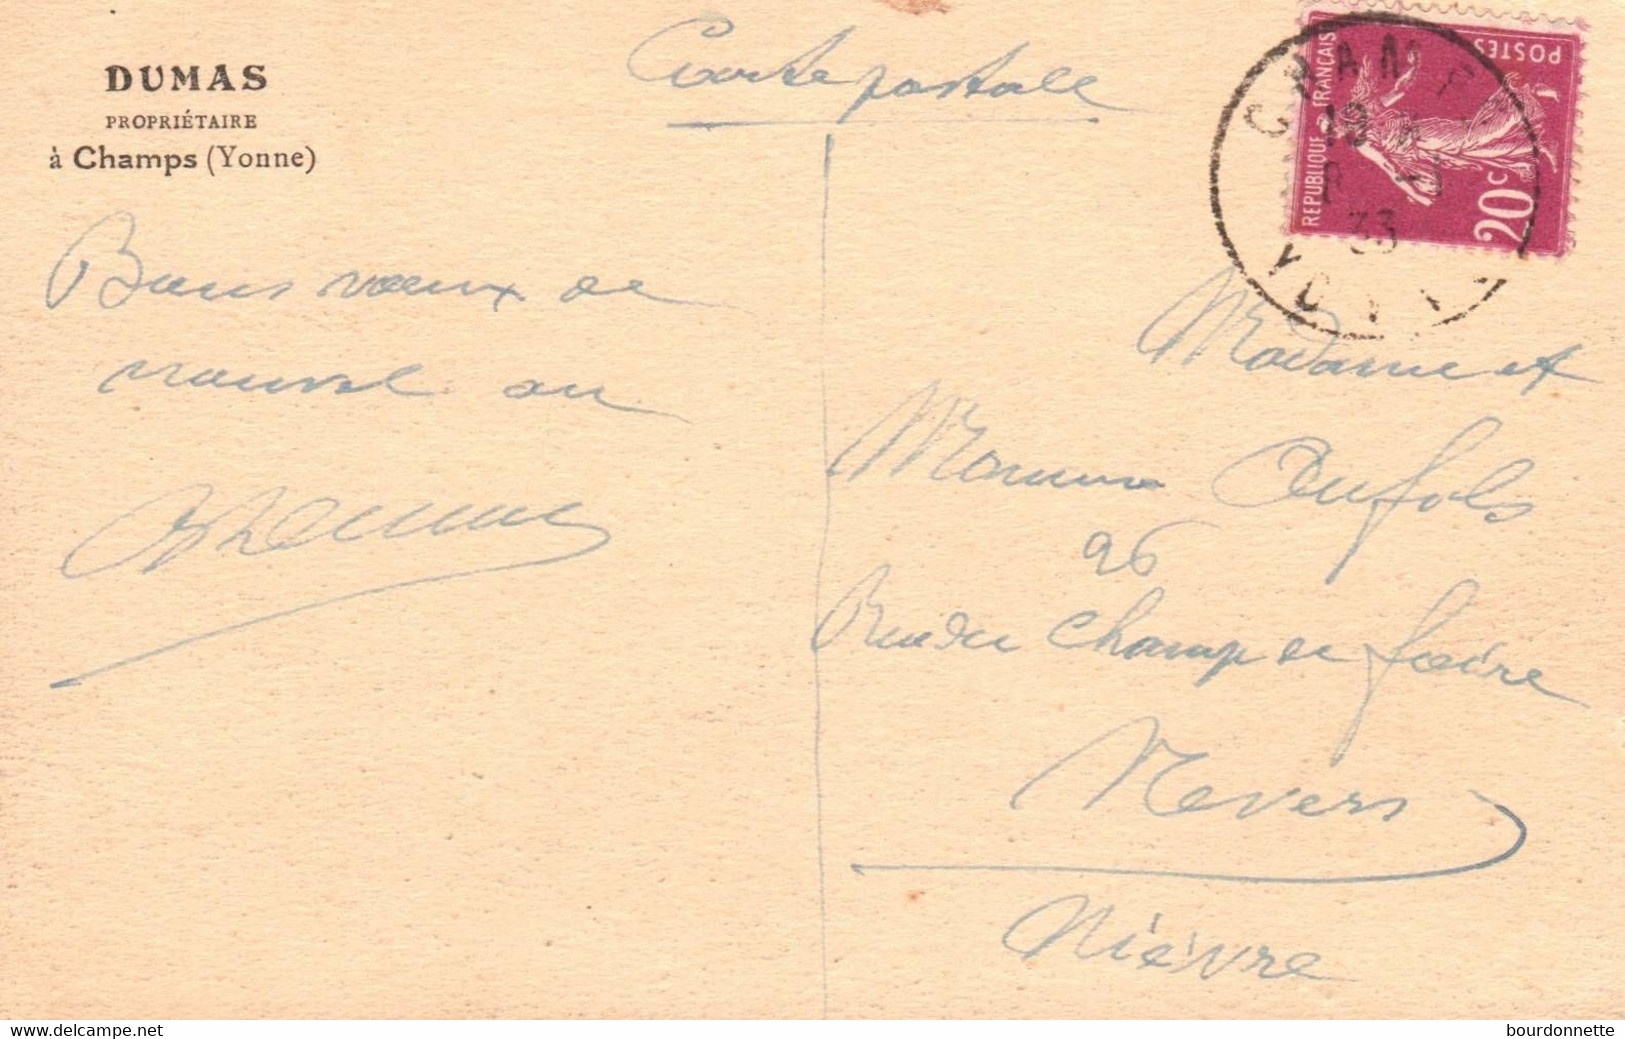 DUMAS
PROPRIÉTAIRE
à Champs (Yonne)
Carte postale
REPUBLIQUE FRANÇAISE
POSTES
20c
33
Bons voeux de
nouvel an
Madame et
Monsieur
26
Rue du Champ de foire
Nevers
Nièvre
www.delcampe.net
bourdonnette